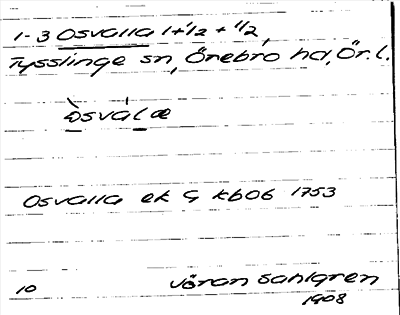 1-3 Osvalla 1+1/2 + 1/2,
Tysslinge sn, Örebro hd, Ör. l.
òsvál æ
Osvalla ek G kb06 1753
10 Jöran Sahlgren
1908